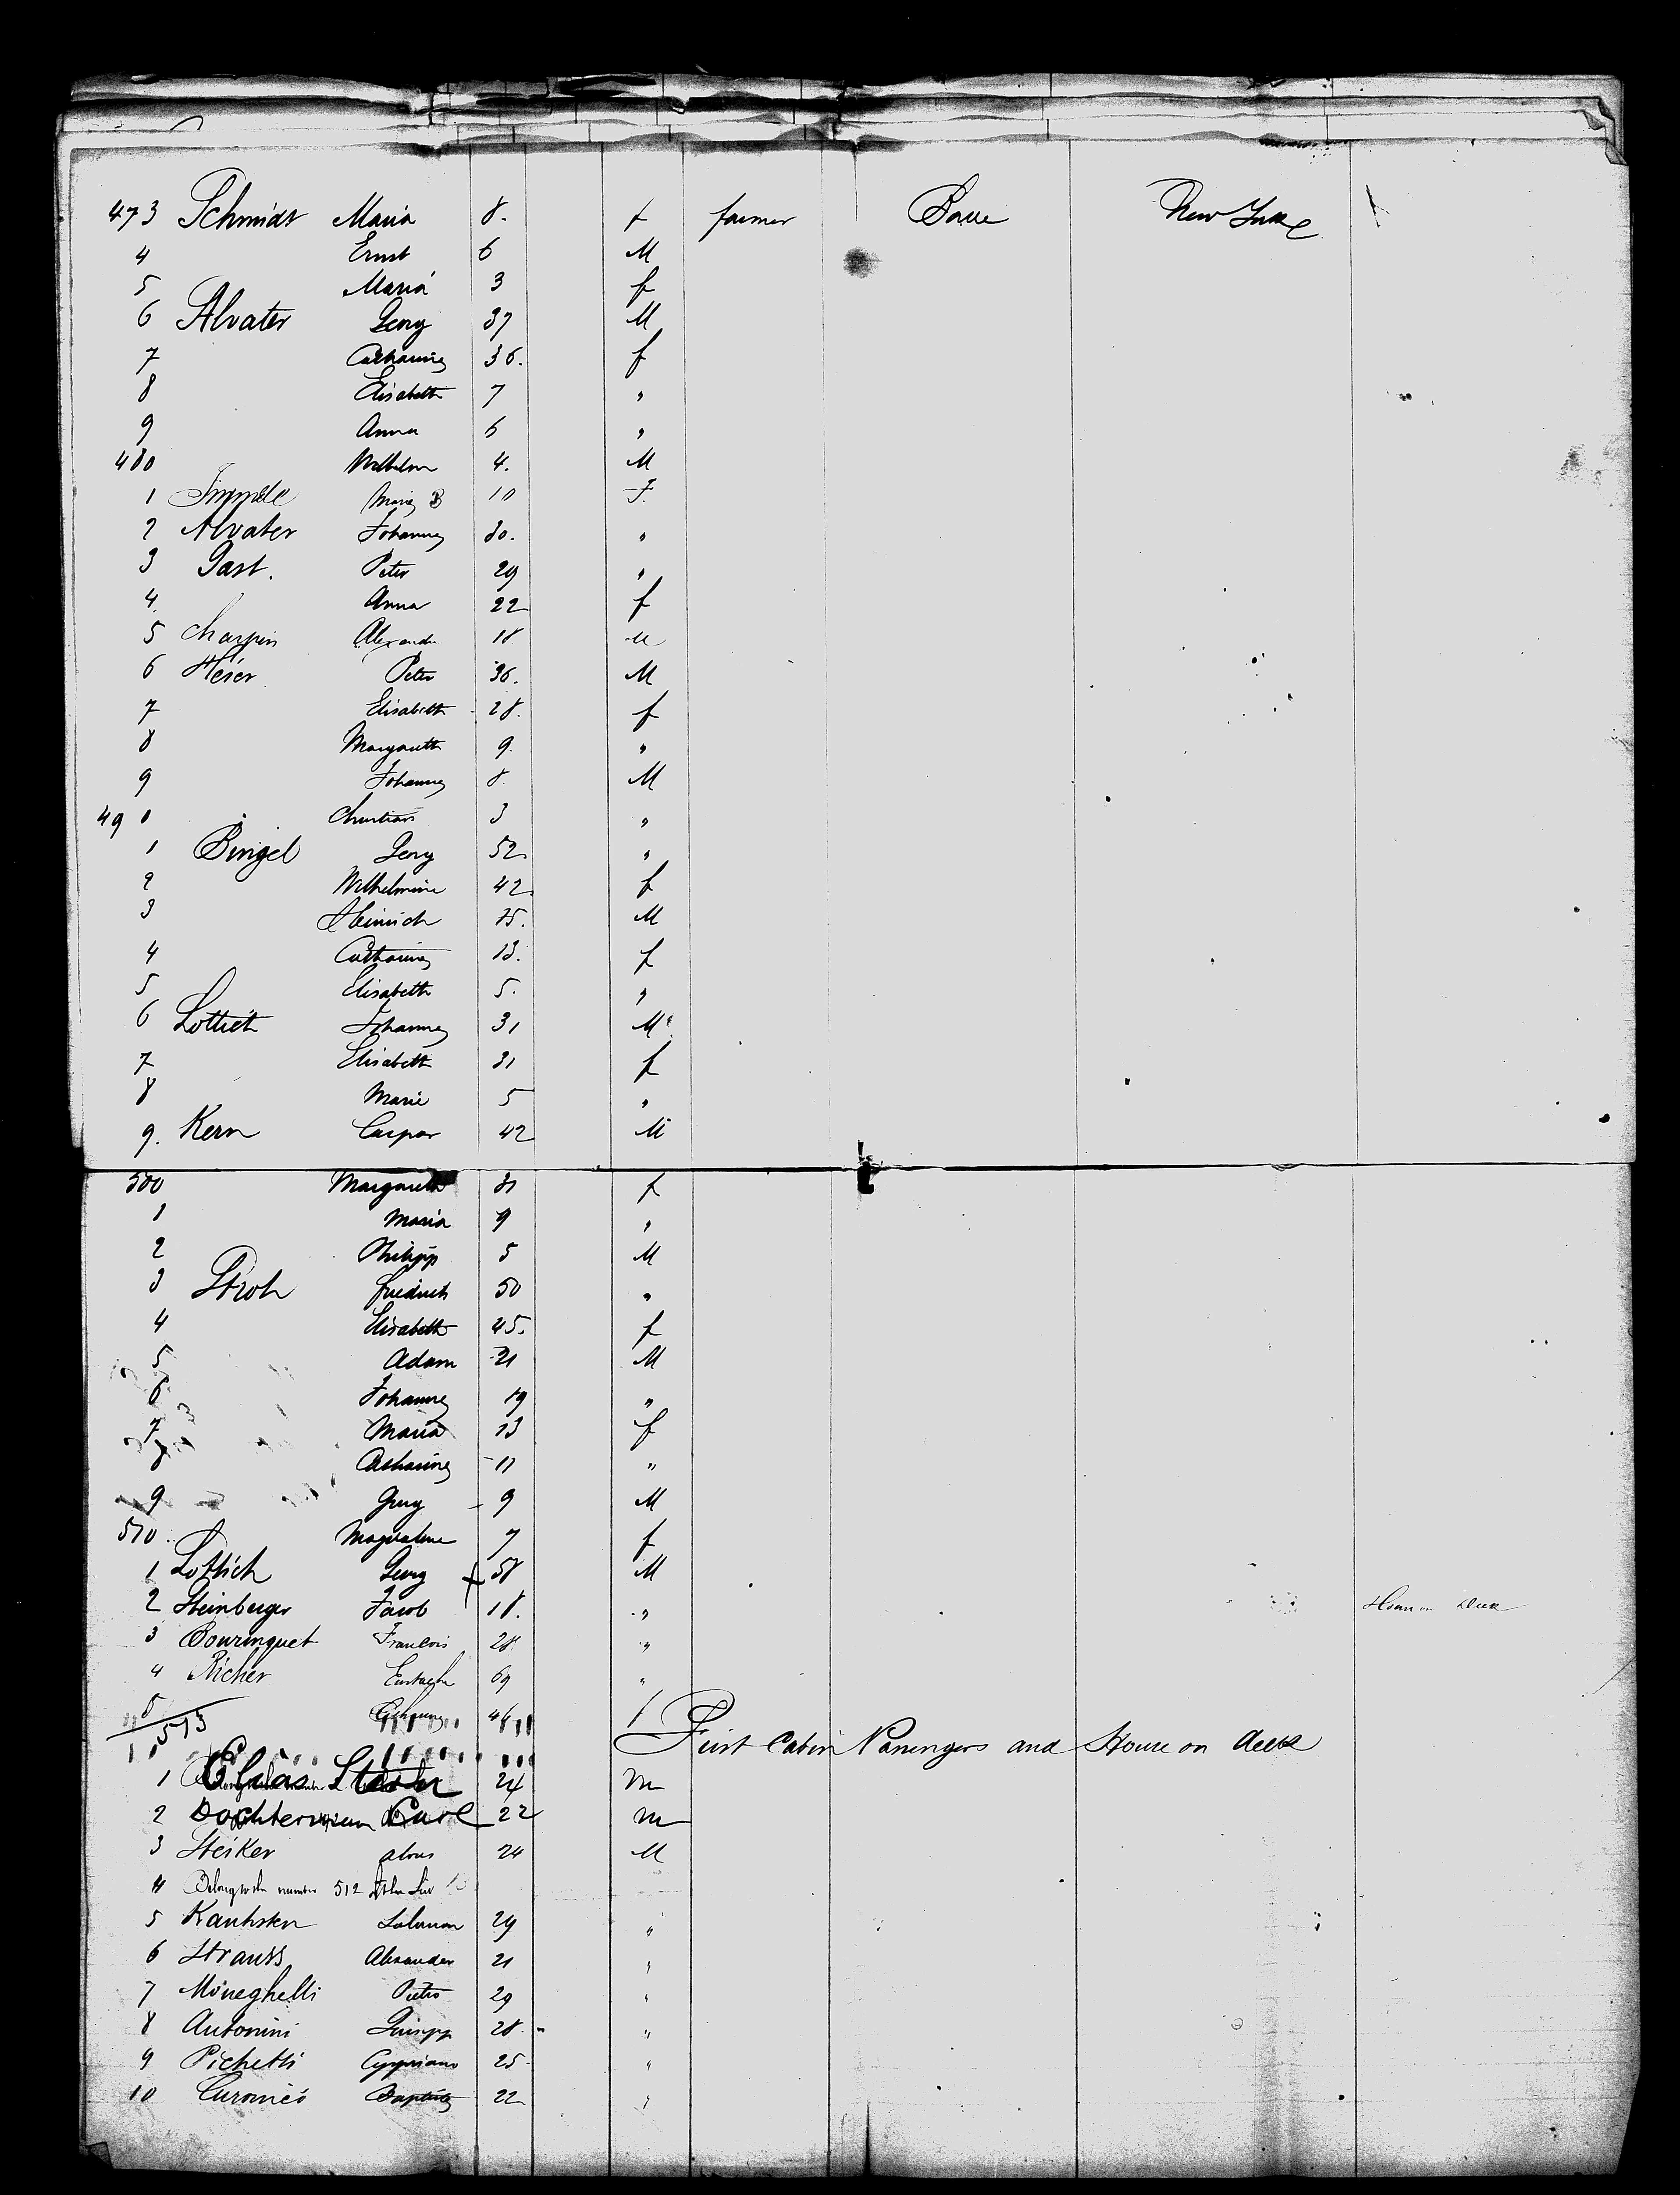 473 Schmidt Maria 8. f farmer New York
4 Ernst 6 M
5 Maria 3 f
6 Alvater Georg 37 M
7 Catharine 36. f
8 Elisabeth 7 "
9 Anna 6 "
480 Wilhelm 4. M
1 Marie B 10 F.
2 Alvater Johannes 30. "
3 Gast. Peter 29 "
4 Anna 22 f
5 Charpin Alexandre 18 M
6 Heser Peter 36. M
7 Elisabeth 28. f
8 Margareth 9. "
9 Johannes 8. M
490 Christian 3 "
1 Bingel Georg 52 "
2 Wilhelmine 42. f
3 Heinrich 15. M
4 Catharine 13. f
5 Elisabeth 5. "
6 Lottich Johannes 31 M
7 Elisabeth 31 f
8 Marie 5 "
9. Kern Caspar 42 M
500 Margareth 31 f
1 Maria 9 "
2 Philipp 5 M
3 Stroh Friedrich 50 "
4 Elisabeth 45. f
5 Adam 21 M
6 Johannes 19 "
7 Maria 13 f
8 Catharine 11 "
9 Georg 9 M
510 Magdalene 7 f
1 Lottich Georg 58 M
2 Steinberger Jacob 18. " House on Deck
3 Bourinquet Francois 28 "
4 Richer Eustache 69 "
5 46 f
513 First Cabin Passengers and House on deck
1 Elias 24 m
2 Dochterman Carl 22 m
3 Steiker alois 24 M
4 Belong to the number 512
5 Salomon 29 "
6 Strauss Alexander 21 "
7 Mineghelli Pietro 29 "
8 Antonini Guisepp 28. "
9 Pichetti Cypriano 25. "
10 22 "